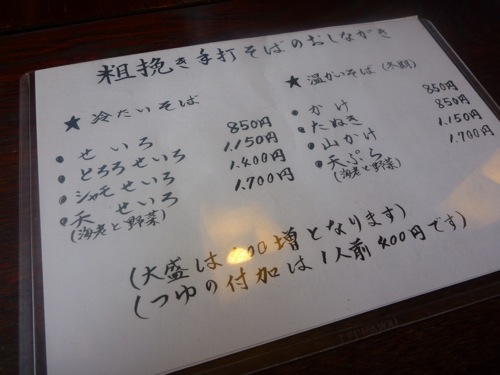 粗挽き手打そばのおしながき
★ 冷たいそば
・せいろ 850円
・とろろせいろ 1,150円
・シャモせいろ 1,400円
・天せいろ 1,700円
(海老と野菜)
★ 温かいそば (冬期)
・かけ 850円
・たぬき 850円
・山かけ 1,150円
・天ぷら 1,700円
(海老と野菜)
(大盛は 00増となります)
(つゆの付加は1人前400円です)